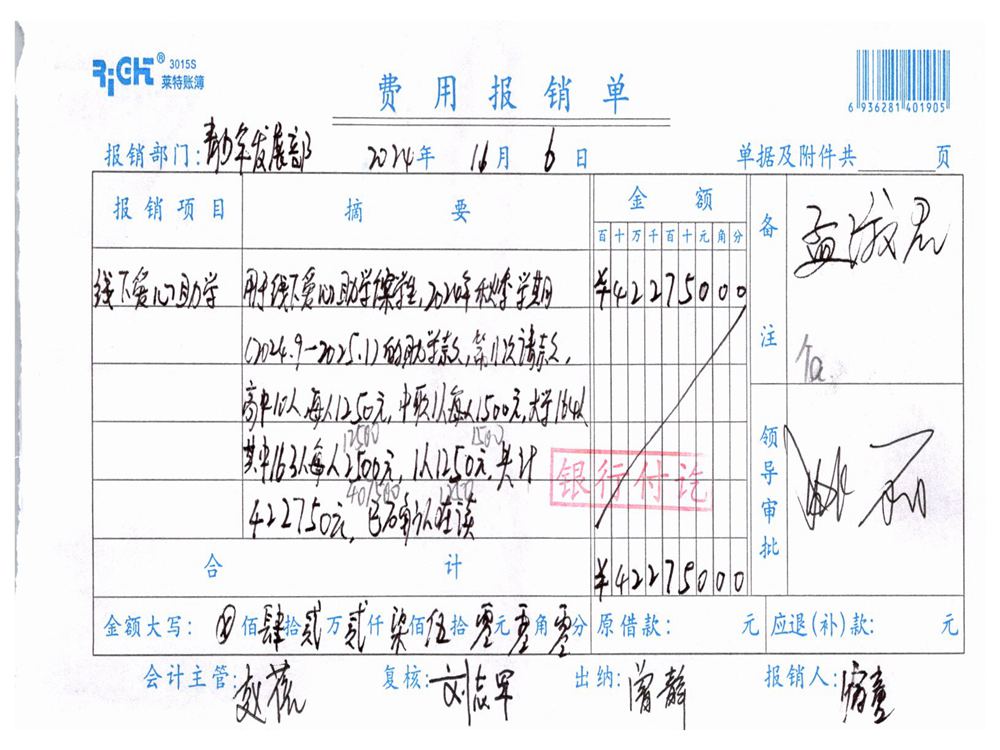 RiGHT® 3015S
莱特账簿
费用报销单
6 936281 401905
报销部门: 发展部 2024年 月 6日 单据及附件共 页
报销项目 摘要 金额 备注
百十万千百十元角分
线下爱心助学 用于线下爱心助学 学生,2024年秋季学期 ¥42275000
(2024.9—2025.1)的助学款,第 次请款,
高中10人,每人1250元,中职1人每人1500元,大学164人
12500 1500
其中163人每人2500元,1人1250元,共计
银行付讫
407500 1250
422750元,已 确认在读
领导审批
合计 ¥42275000
金额大写: 佰肆拾贰万贰仟柒佰伍拾零元零角零分 原借款: 元 应退(补)款: 元
会计主管: 复核: 刘志军 出纳: 曾静 报销人: